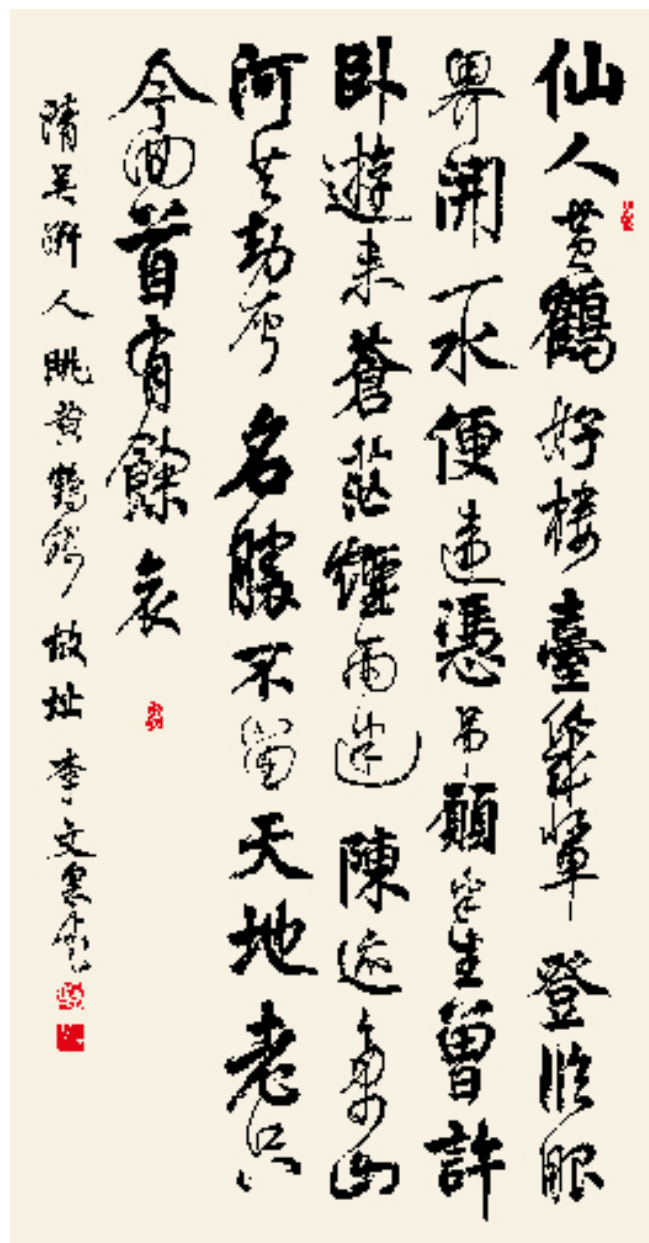 仙人黄鶴好樓臺幾輩登臨眼
界開一水便違憑弔願半生曾許
卧遊来蒼茫雨迷陳迹山
河共劫灰名勝不留天地老只
今回首有餘哀
清吴趼人眺黄鶴樓故址 李文書